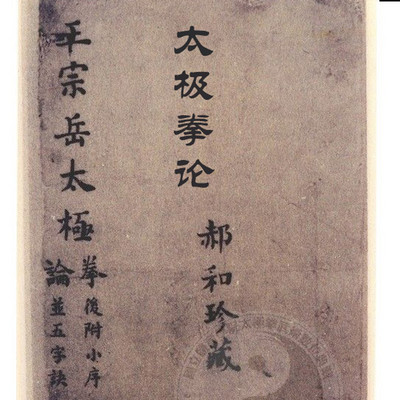 太极拳论
郝和珍藏
王宗岳太極
拳論
後附小序
並五字訣